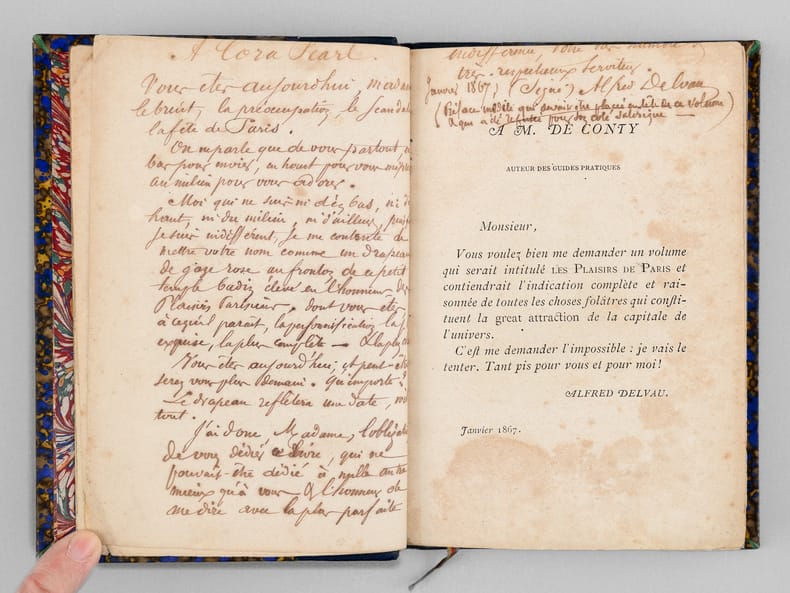 A Cora Pearl.
Vous êtes aujourd'hui, madame
le bruit, la préoccupation, le scandale
la fête de Paris.
On ne parle que de vous partout, en
bas pour envier, en haut pour vous mépriser
au milieu pour vous adorer.
Moi qui ne suis ni d'en bas, ni d'en
haut, ni du milieu, ni d'ailleurs, puisque
je suis indifférent, je me contente de
mettre votre nom comme un drapeau
de gaze rose au fronton de ce petit
temple badin élevé en l'honneur des
Plaisirs Parisiens, dont vous êtes
à ce qu'il paraît, la personnification la
exquise, la plus complète — & la plus
Vous êtes aujourd'hui, et peut-être
serez vous plus demain. Qu'importe
Le drapeau reflétera une date,
tout.
J'ai donc, Madame, l'obligation
de vous dédier ce livre, qui ne
pouvait être dédié à nulle autre
mieux qu'à vous & l'honneur de
me dire avec la plus parfaite
indifférence, votre très humble &
très respectueux serviteur.
Janvier 1867, (Signé) Alfred Delvau
(Préface inédite qui devait être placée en tête de ce volume)
& qui a été refusée pour son côté satirique —
A M. DE CONTY
AUTEUR DES GUIDES PRATIQUES
Monsieur,
Vous voulez bien me demander un volume
qui serait intitulé LES PLAISIRS DE PARIS et
contiendrait l'indication complète et rai-
sonnée de toutes les choses folâtres qui consti-
tuent la great attraction de la capitale de
l'univers.
C'est me demander l'impossible : je vais le
tenter. Tant pis pour vous et pour moi !
ALFRED DELVAU.
Janvier 1867.